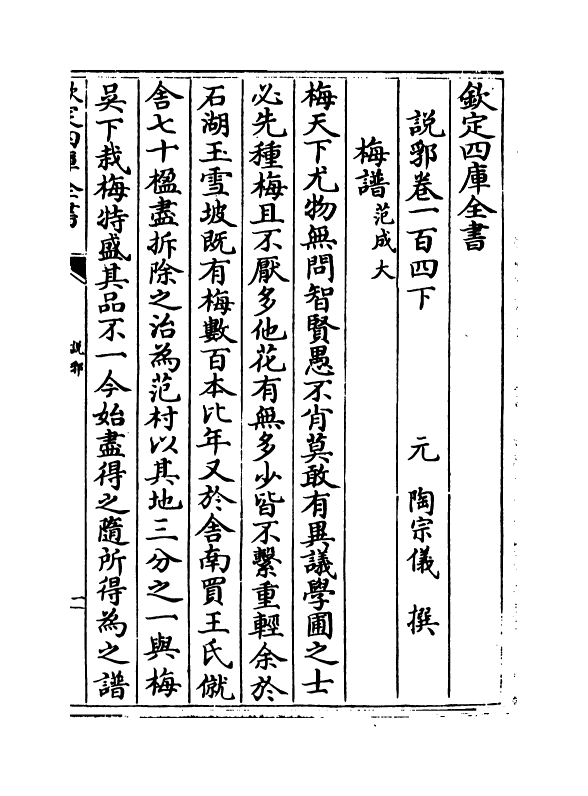 欽定四庫全書
説郛卷一百四下
元 陶宗儀 撰
梅譜 范成大
梅天下尤物無問智賢愚不肖莫敢有異議學圃之士
必先種梅且不厭多他花有無多少皆不繫重輕余於
石湖玉雪坡既有梅數百本比年又於舍南買王氏僦
舍七十楹盡拆除之治為范村以其地三分之一與梅
吳下栽梅特盛其品不一今始盡得之隨所得為之譜
欽定四庫全書
説郛